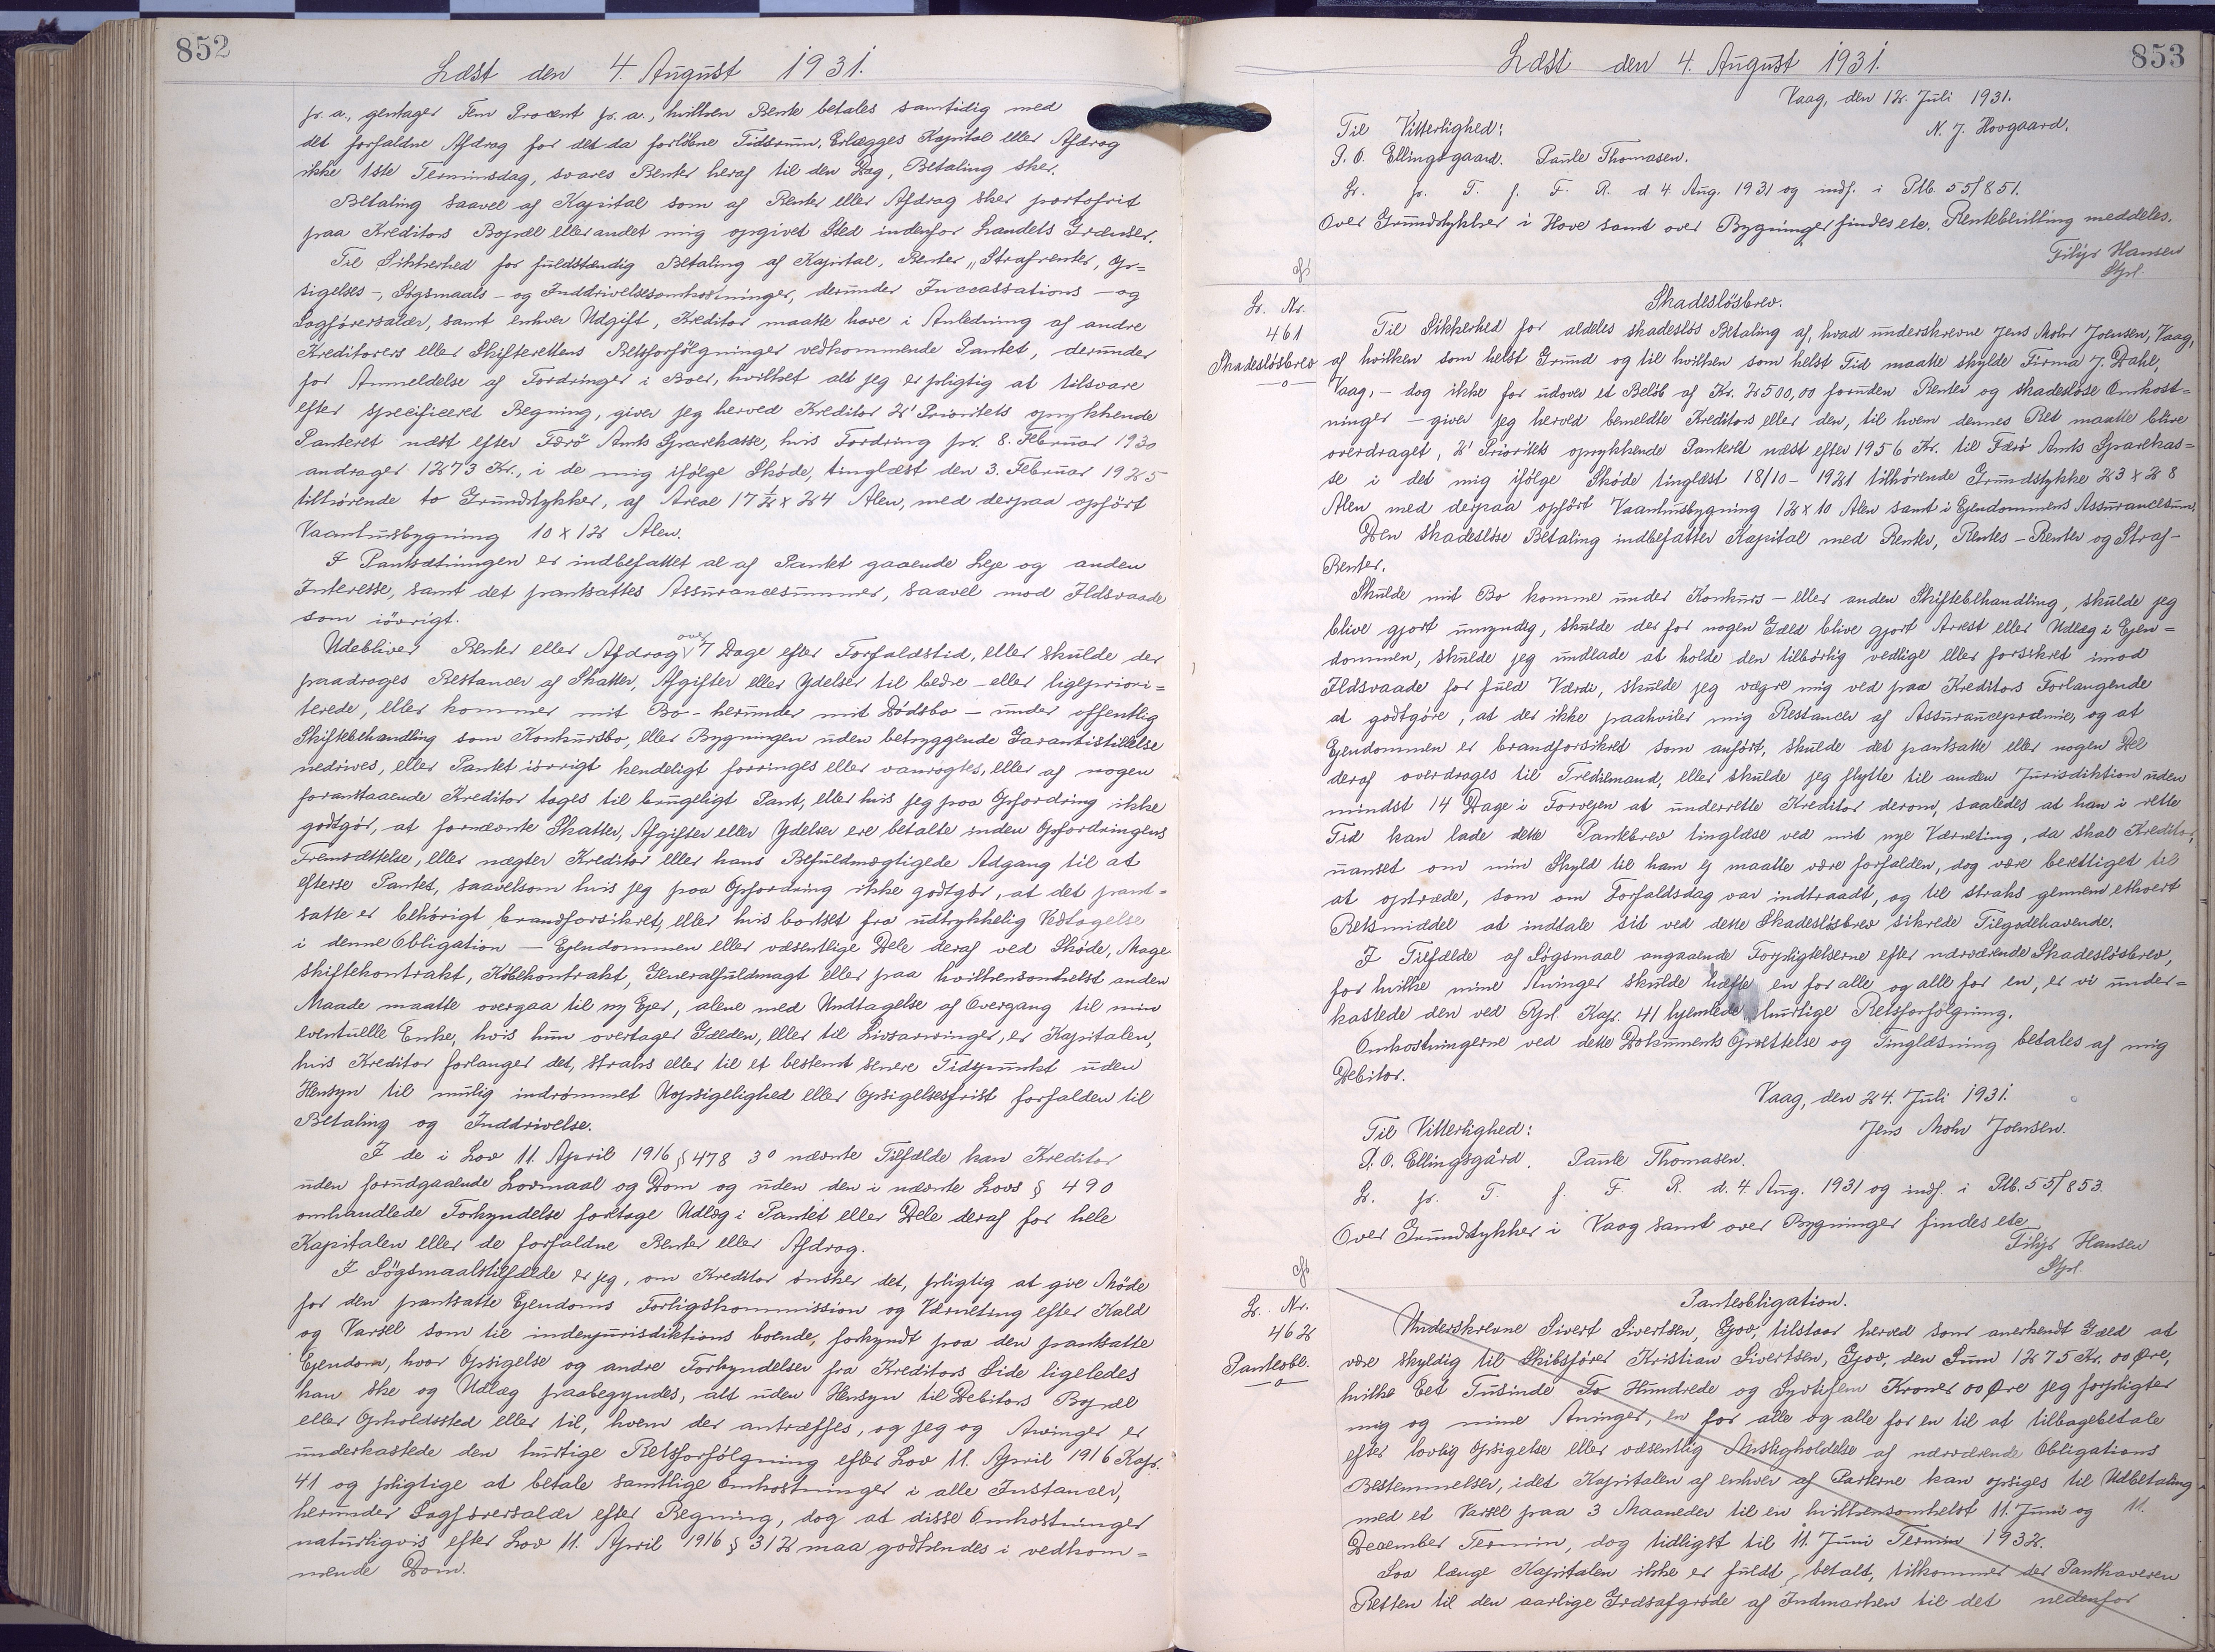 852
Læst den 4. August 1931.
p. a., gentager Fem Procent p. a., hvilken Rente betales samtidig med
det forfaldne Afdrag for det da forløbne Tidsrum. Erlægges Kapital eller Afdrag
ikke 1ste Terminsdag, svares Renter heraf til den Dag, Betaling sker.
Betaling saavel af Kapital som af Renter eller Afdrag sker portofrit
paa Kreditors Bopæl eller andet mig opgivet Sted indenfor Landets Grænser.
Til Sikkerhed for fuldstændig Betaling af Kapital, Renter, Strafrenter, Op-
sigelses-, Søgsmaals- og Inddrivelsesomkostninger, derunder Inccassations- og
Sagførersalær, samt enhver Udgift, Kreditor maatte have i Anledning af andre
Kreditorers eller Skifterettens Retsforfølgninger vedkommende Pantet, derunder
for Anmeldelse af Fordringer i Boer, hvilket alt jeg er pligtig at tilsvare
efter specificeret Regning, giver jeg herved Kreditor 2' Prioritets oprykkende
Panteret næst efter Færø Amts Sparekasse, hvis Fordring pr. 8. Februar 1930
andrager 1273 Kr., i de mig ifølge Skøde, tinglæst den 3. Februar 1925
tilhørende to Grundstykker, af Areal 17½ x 24 Alen, med derpaa opført
Vaanhusbygning 10 x 12 Alen.
I Pantsætningen er indbefattet al af Pantet gaaende Leje og anden
Interesse, samt det pantsattes Assurancesummer, saavel mod Ildsvaade
som iøvrigt.
Udebliver Renter eller Afdrag over 7 Dage efter Forfaldstid, eller skulde der
paadrages Restancer af Skatter, Afgifter eller Ydelser til bedre- eller ligepriori-
terede, eller kommer mit Bo - herunder mit Dödsbo - under offentlig
Skiftebehandling som Konkursbo, eller Bygningen uden betryggende Garantistillelse
nedrives, eller Pantet iøvrigt kendeligt forringes eller vanrøgtes, eller af nogen
foranstaaende Kreditor tages til brugeligt Pant, eller hvis jeg paa Opfordring ikke
godtgør, at fornævnte Skatter, Afgifter eller Ydelser ere betalte inden Opfordringens
Fremsættelse, eller nægter Kreditor eller hans Befuldmægtigede Adgang til at
efterse Pantet, saavelsom hvis jeg paa Opfordring ikke godtgør, at det pant-
satte er behørigt brandforsikret, eller hvis bortset fra udtrykkelig Vedtagelse
i denne Obligation - Ejendommen eller væsentlige Dele deraf ved Skøde, Mage
skiftekontrakt, Købekontrakt, Generalfuldmagt eller paa hvilkensomhelst anden
Maade maatte overgaa til ny Ejer, alene med Undtagelse af Overgang til min
eventuelle Enke, hvis hun overtager Gælden, eller til Livsarvinger, er Kapitalen,
hvis Kreditor forlanger det, straks eller til et bestemt senere Tidspunkt uden
Hensyn til mulig indrømmet Uopsigelighed eller Opsigelsesfrist forfalden til
Betaling og Inddrivelse.
I de i Lov 11. April 1916 § 478 3° nævnte Tilfælde kan Kreditor
uden forudgaaende Lovmaal og Dom og uden den i nævnte Lovs § 490
omhandlede Forkyndelse foretage Udlæg i Pantet eller Dele deraf for hele
Kapitalen eller de forfaldne Renter eller Afdrag.
I Søgsmaalstilfælde er jeg, om Kreditor ønsker det, pligtig at give Møde
for den pantsatte Ejendoms Forligskommission og Værneting efter Kald
og Varsel som til indenjurisdiktions boende, forkyndt paa den pantsatte
Ejendom, hvor Opsigelse og andre Forkyndelser fra Kreditors Side ligeledes
kan ske og Udlæg paabegyndes, alt uden Hensyn til Debitors Bopæl
eller Opholdssted eller til, hvem der antræffes, og jeg og Arvinger er
underkastede den hurtige Retsforfølgning efter Lov 11. April 1916 Kap.
41 og pligtige at betale samtlige Omkostninger i alle Instancer,
herunder Sagførersalær efter Regning, dog at disse Omkostninger
naturligvis efter Lov 11. April 1916 § 312 maa godkendes i vedkom-
mende Dom.
853
Læst den 4. August 1931.
Vaag, den 12. Juli 1931.
Til Vitterlighed: N. J. Hovgaard.
P. O. Ellingsgaard. Paule Thomasen.
L. p. T. f. F. R. d. 4 Aug. 1931 og indf. i Ptb. 55/851.
Over Grundstykker i Hove samt over Bygninger findes ete. Retsbeskikkelse meddeles.
Filip Hansen
Sfl.
L. Nr.
461
Skadesløsbrev
Skadesløsbrev.
Til Sikkerhed for aldeles skadesløs Betaling af, hvad underskrevne Jens Mohr Joensen, Vaag,
af hvilken som helst Grund og til hvilken som helst Tid maatte skylde Firma J. Dahl,
Vaag, - dog ikke for udover et Beløb af Kr. 2500,00 foruden Renter og skadesløse Omkost-
ninger - giver jeg herved bemeldte Kreditors eller den, til hvem dennes Ret maatte blive
overdraget, 2' Prioritets oprykkende Panteret næst efter 1956 Kr. til Færø Amts Sparekas-
se i det mig ifølge Skøde tinglæst 18/10 - 1921 tilhørende Grundstykke 23 x 28
Alen med derpaa opført Vaanhusbygning 12 x 10 Alen samt i Ejendommens Assurancesum.
Den skadesløse Betaling indbefatter Kapital med Renter, Rentes-Renter og Straf-
Renter.
Skulde mit Bo komme under Konkurs- eller anden Skiftebehandling, skulde jeg
blive gjort umyndig, skulde der for nogen Gæld blive gjort Arrest eller Udlæg i Ejen-
dommen, skulde jeg undlade at holde den tilbørlig vedlige eller forsikret imod
Ildsvaade for fuld Værdi, skulde jeg vægre mig ved paa Kreditors Forlangende
at godtgøre, at der ikke paahviler mig Restancer af Assurancepræmie, og at
Ejendommen er brandforsikret som anført, skulde det pantsatte eller nogen Del
deraf overdrages til Trediemand, eller skulde jeg flytte til anden Jurisdiktion uden
mindst 14 Dage i Forvejen at underrette Kreditor derom, saaledes at han i rette
Tid kan lade dette Pantebrev tinglæse ved mit nye Værneting, da skal Kreditor,
uanset om min Skyld til ham ej maatte være forfalden, dog være berettiget til
at optræde, som om Forfaldsdag var indtraadt, og til straks gennem ethvert
Retsmiddel at indtale sit ved dette Skadesløsbrev sikrede Tilgodehavende.
I Tilfælde af Søgsmaal angaaende Forpligtelserne efter nærværende Skadesløsbrev,
for hvilke mine Arvinger skulde hæfte en for alle og alle for en, er vi under-
kastede den ved Rpl. Kap. 41 hjemlede hurtige Retsforfølgning.
Omkostningerne ved dette Dokuments Oprettelse og Tinglæsning betales af mig
Debitor.
Vaag, den 24. Juli 1931.
Til Vitterlighed: Jens Mohr Joensen.
P. O. Ellingsgård. Paule Thomasen.
L. p. T. f. F. R. d. 4. Aug. 1931 og indf. i Ptb. 55/853.
Over Grundstykker i Vaag samt over Bygninger findes ete
Filip Hansen
Sfl.
L. Nr.
462
Panteobl.
Panteobligation.
Underskrevne Sivert Sivertsen, Gjov, tilstaar herved som anerkendt Gæld at
være skyldig til Skibsfører Kristian Sivertsen, Gjov, den Sum 1275 Kr. 00 Øre,
hvilke Eet Tusinde To Hundrede og Syvtifem Kroner 00 Øre jeg forpligter
mig og mine Arvinger, en for alle og alle for en til at tilbagebetale
efter lovlig Opsigelse eller væsentlig Misligholdelse af nærværende Obligations
Bestemmelser, idet Kapitalen af enhver af Parterne kan opsiges til Udbetaling
med et Varsel paa 3 Maaneder til en hvilkensomhelst 11. Juni og 11.
December Termin, dog tidligst til 11. Juni Termin 1932.
Saa længe Kapitalen ikke er fuldt betalt, tilkommer der Panthaveren
Retten til den aarlige Græsafgrøde af Indmarken til det nedenfor